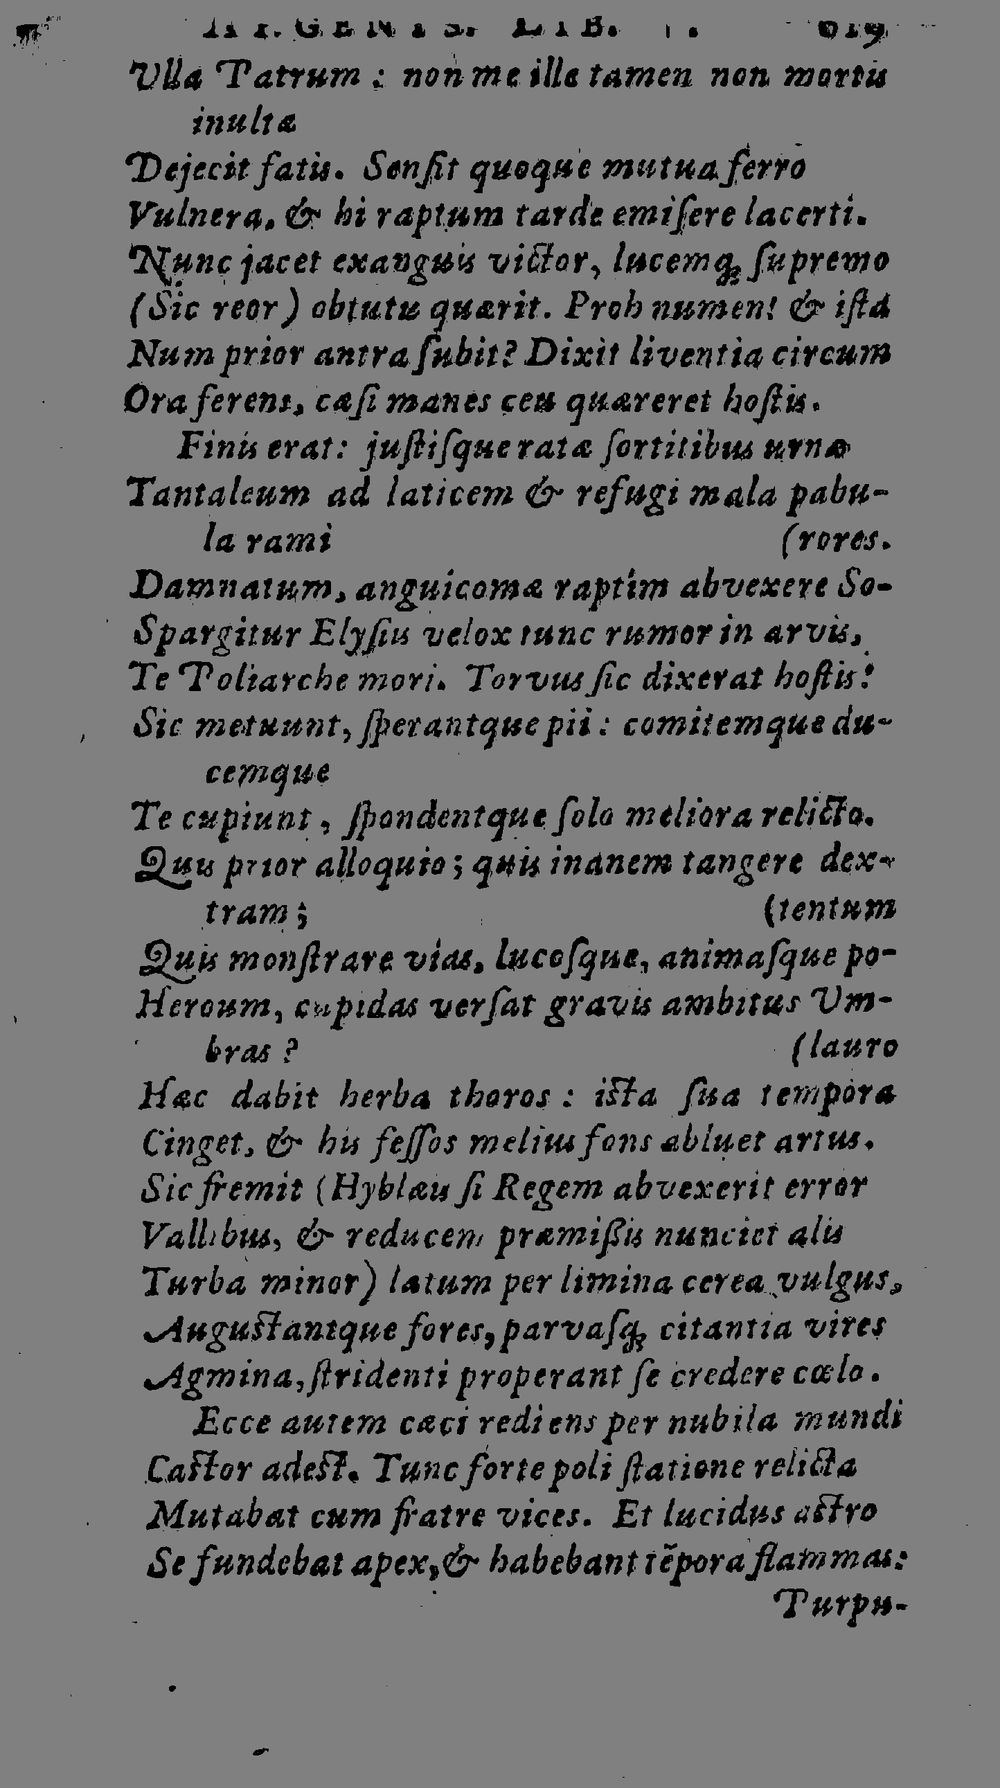 GENIS. LIB. 619
Ulla Patrum : non me ille tamen non mortis
inultæ
Dejecit fatis. Sensit quoque mutua ferro
Vulnera, & hi raptum tarde emiſere lacerti.
Nunc jacet exanguis victor, lucemq; ſupremo
(Sic reor) obtutu quærit. Proh numen! & iſta
Num prior antra ſubit? Dixit liventia circum
Ora ferens, cæſi manes ceu quæreret hoſtis.
Finis erat: juſtiſque ratæ ſortitibus urnæ
Tantaleum ad laticem & refugi mala pabu-
la rami (rores.
Damnatum, anguicomæ raptim abvexere So-
Spargitur Elyſiis velox tunc rumor in arvis,
Te Poliarche mori. Torvus ſic dixerat hoſtis:
Sic metuunt, ſperantque pii : comitemque du-
cemque
Te cupiunt, ſpondentque ſolo meliora relicto.
Quis prior alloquio; quis inanem tangere dex-
tram; (tentum
Quis monſtrare vias, lucoſque, animaſque po-
Heroum, cupidas verſat gravis ambitus Um-
bras ? (lauro
Hæc dabit herba thoros : iſta ſua tempora
Cinget, & his feſſos melius fons abluet artus.
Sic fremit (Hyblæis ſi Regem abvexerit error
Vallibus, & reducem præmiſſis nunciet alis
Turba minor) latum per limina cerea vulgus,
Auguſtantque fores, parvaſq; citantia vires
Agmina, ſtridenti properant ſe credere cœlo.
Ecce autem cæci rediens per nubila mundi
Caſtor adeſt. Tunc forte poli ſtatione relicta
Mutabat cum fratre vices. Et lucidus aſtro
Se fundebat apex, & habebant tẽpora flammas:
Turpu-